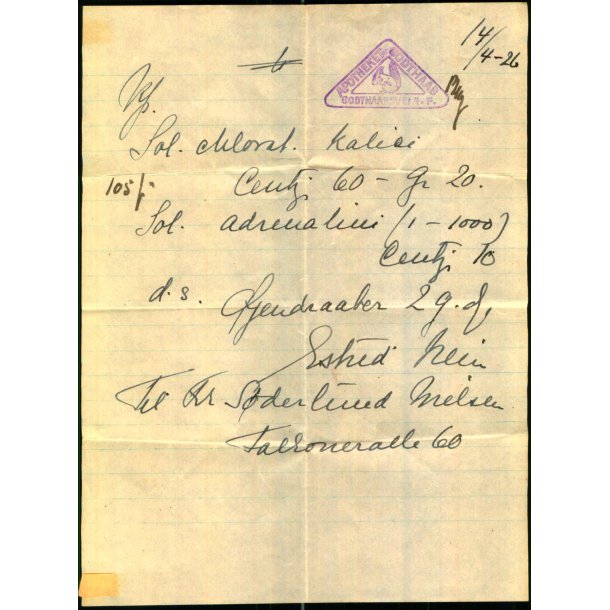 14/4-26
APOTHEKET GODTHAAB
GODTHAABSVEJ 4. F.
Rp.
Sol. chlorat. Kalici
105/-
Centij 60 - Gr 20.
Sol. adrenalini (1-1000)
Centij 10
d. s. Øjendraaber 2 g. d.
Estrid Hein
Til Fr. Søderlund Nielsen
Falkoneralle 60